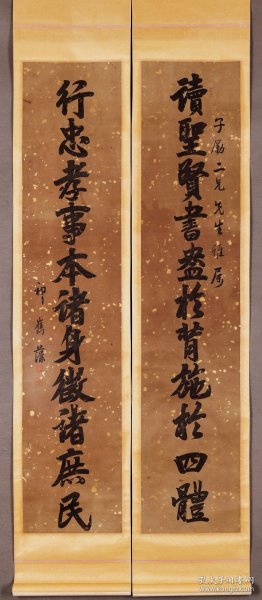 讀聖賢書盎於背施於四體
子勵二兄先生雅属
行忠孝事本諸身徵諸庶民
祁寯藻
孔夫子旧书网
www.kongfz.com